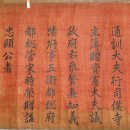 通訓大夫行司僕寺
主簿贈資憲大夫議
政府右參贊兼知義
禁府事五衛都摠府
都摠管宋時榮贈諡
忠顯公者